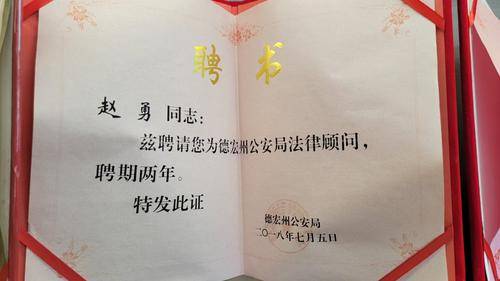 聘书
赵勇同志：
兹聘请您为德宏州公安局法律顾问，
聘期两年。
特发此证
德宏州公安局
二〇一八年七月五日